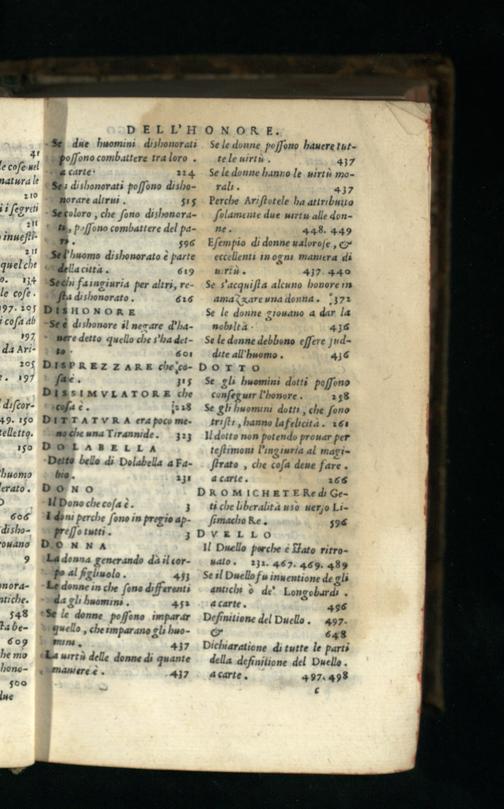 DELL'HONORE.
Se due huomini dishonorati
possono combattere tra loro.
a carte. 224
Se i dishonorati possono disho-
norare altrui. 515
Se coloro, che sono dishonora-
ti, possono combattere del pa-
ro. 596
Se l'huomo dishonorato è parte
della città. 619
Se chi fa ingiuria per altri, re-
sta dishonorato. 626
DISHONORE
Se è dishonore il negare d'ha-
uere detto quello che s'ha det-
to. 601
DISPREZZARE che co-
sa è. 315
DISSIMVLATORE che
cosa è. 328
DITTATVRA era poco me-
no che una Tirannide. 323
DOLABELLA
Detto bello di Dolabella a Fa-
bio. 231
DONO
Il Dono che cosa è. 3
I doni perche sono in pregio ap-
presso tutti. 3
DONNA
La donna generando dà il cor-
po al figliuolo. 433
Le donne in che sono differenti
da gli huomini. 452
Se le donne possono imparar
quello, che imparano gli huo-
mini. 437
La uirtù delle donne di quante
maniere è. 437
Se le donne possono hauere tut-
te le uirtù. 437
Se le donne hanno le uirtù mo-
rali. 437
Perche Aristotele ha attribuito
solamente due uirtu alle don-
ne. 448. 449
Esempio di donne ualorose, &
eccellenti in ogni maniera di
uirtù. 437. 440
Se s'acquista alcuno honore in
amazzare una donna. 372
Se le donne giouano a dar la
nobiltà. 436
Se le donne debbono essere sud-
dite all'huomo. 436
DOTTO
Se gli huomini dotti possono
conseguir l'honore. 258
Se gli huomini dotti, che sono
tristi, hanno la felicità. 261
Il dotto non potendo prouar per
testimoni l'ingiuria al magi-
strato, che cosa deue fare.
a carte. 266
DROMICHETE Re di Ge-
ti che liberalità usò uerso Li-
simacho Re. 596
DVELLO
Il Duello perche è stato ritro-
uato. 232. 467. 469. 489
Se il Duello fu inuentione de gli
antichi ò de' Longobardi.
a carte. 496
Definitione del Duello. 497.
& 648
Dichiaratione di tutte le parti
della definitione del Duello.
a carte. 497. 498
c